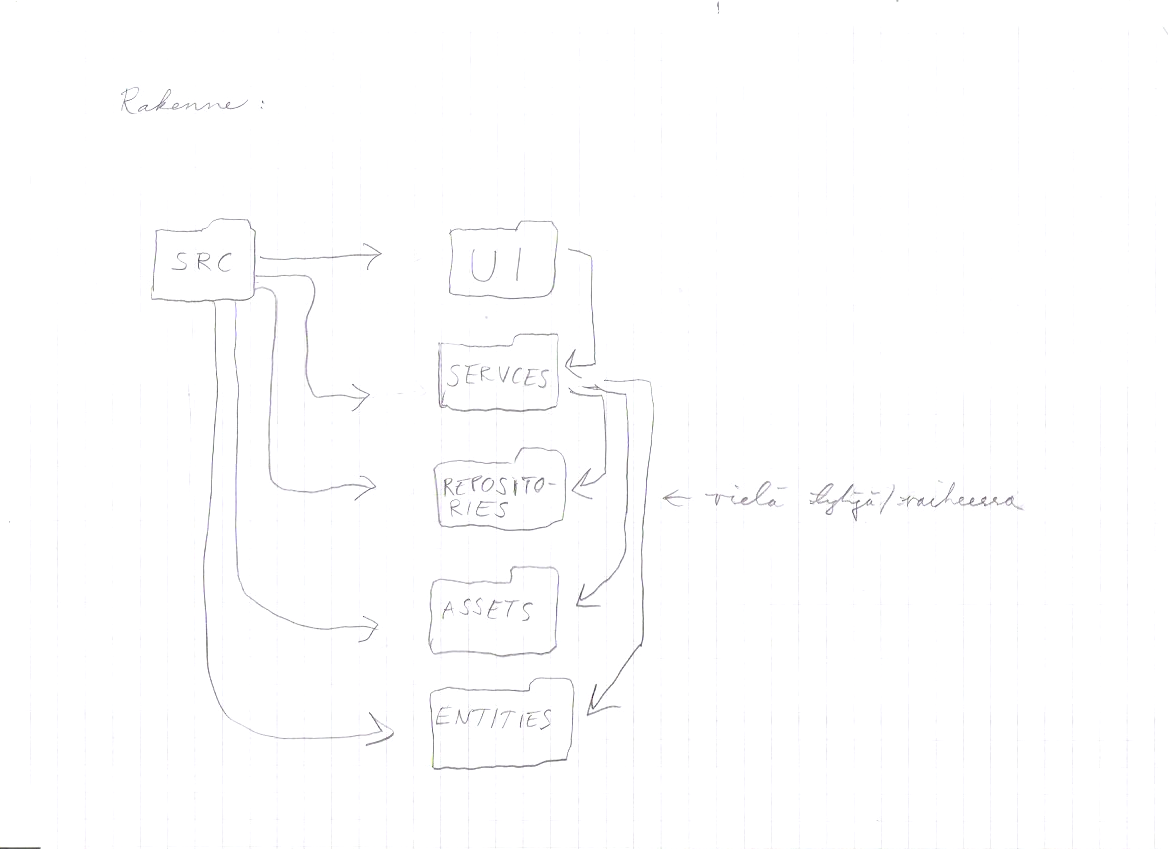 Rakenne :
SRC
UI
SERVCES
REPOSITO-
RIES
← vielä tyhjä/vaiheessa
ASSETS
ENTITIES